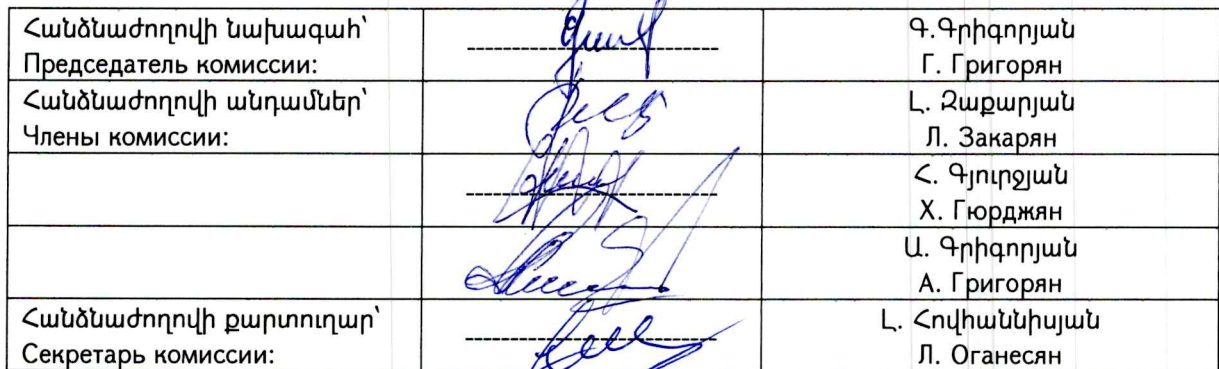 Հանձնաժողովի նախագահ՝
Председатель комиссии:
Գ.Գրիգորյան
Г. Григорян
Հանձնաժողովի անդամներ՝
Члены комиссии:
Լ. Զաքարյան
Л. Закарян
Հ. Գյուրջյան
Х. Гюрджян
Ա. Գրիգորյան
А. Григорян
Հանձնաժողովի քարտուղար՝
Секретарь комиссии:
Լ. Հովհաննիսյան
Л. Оганесян